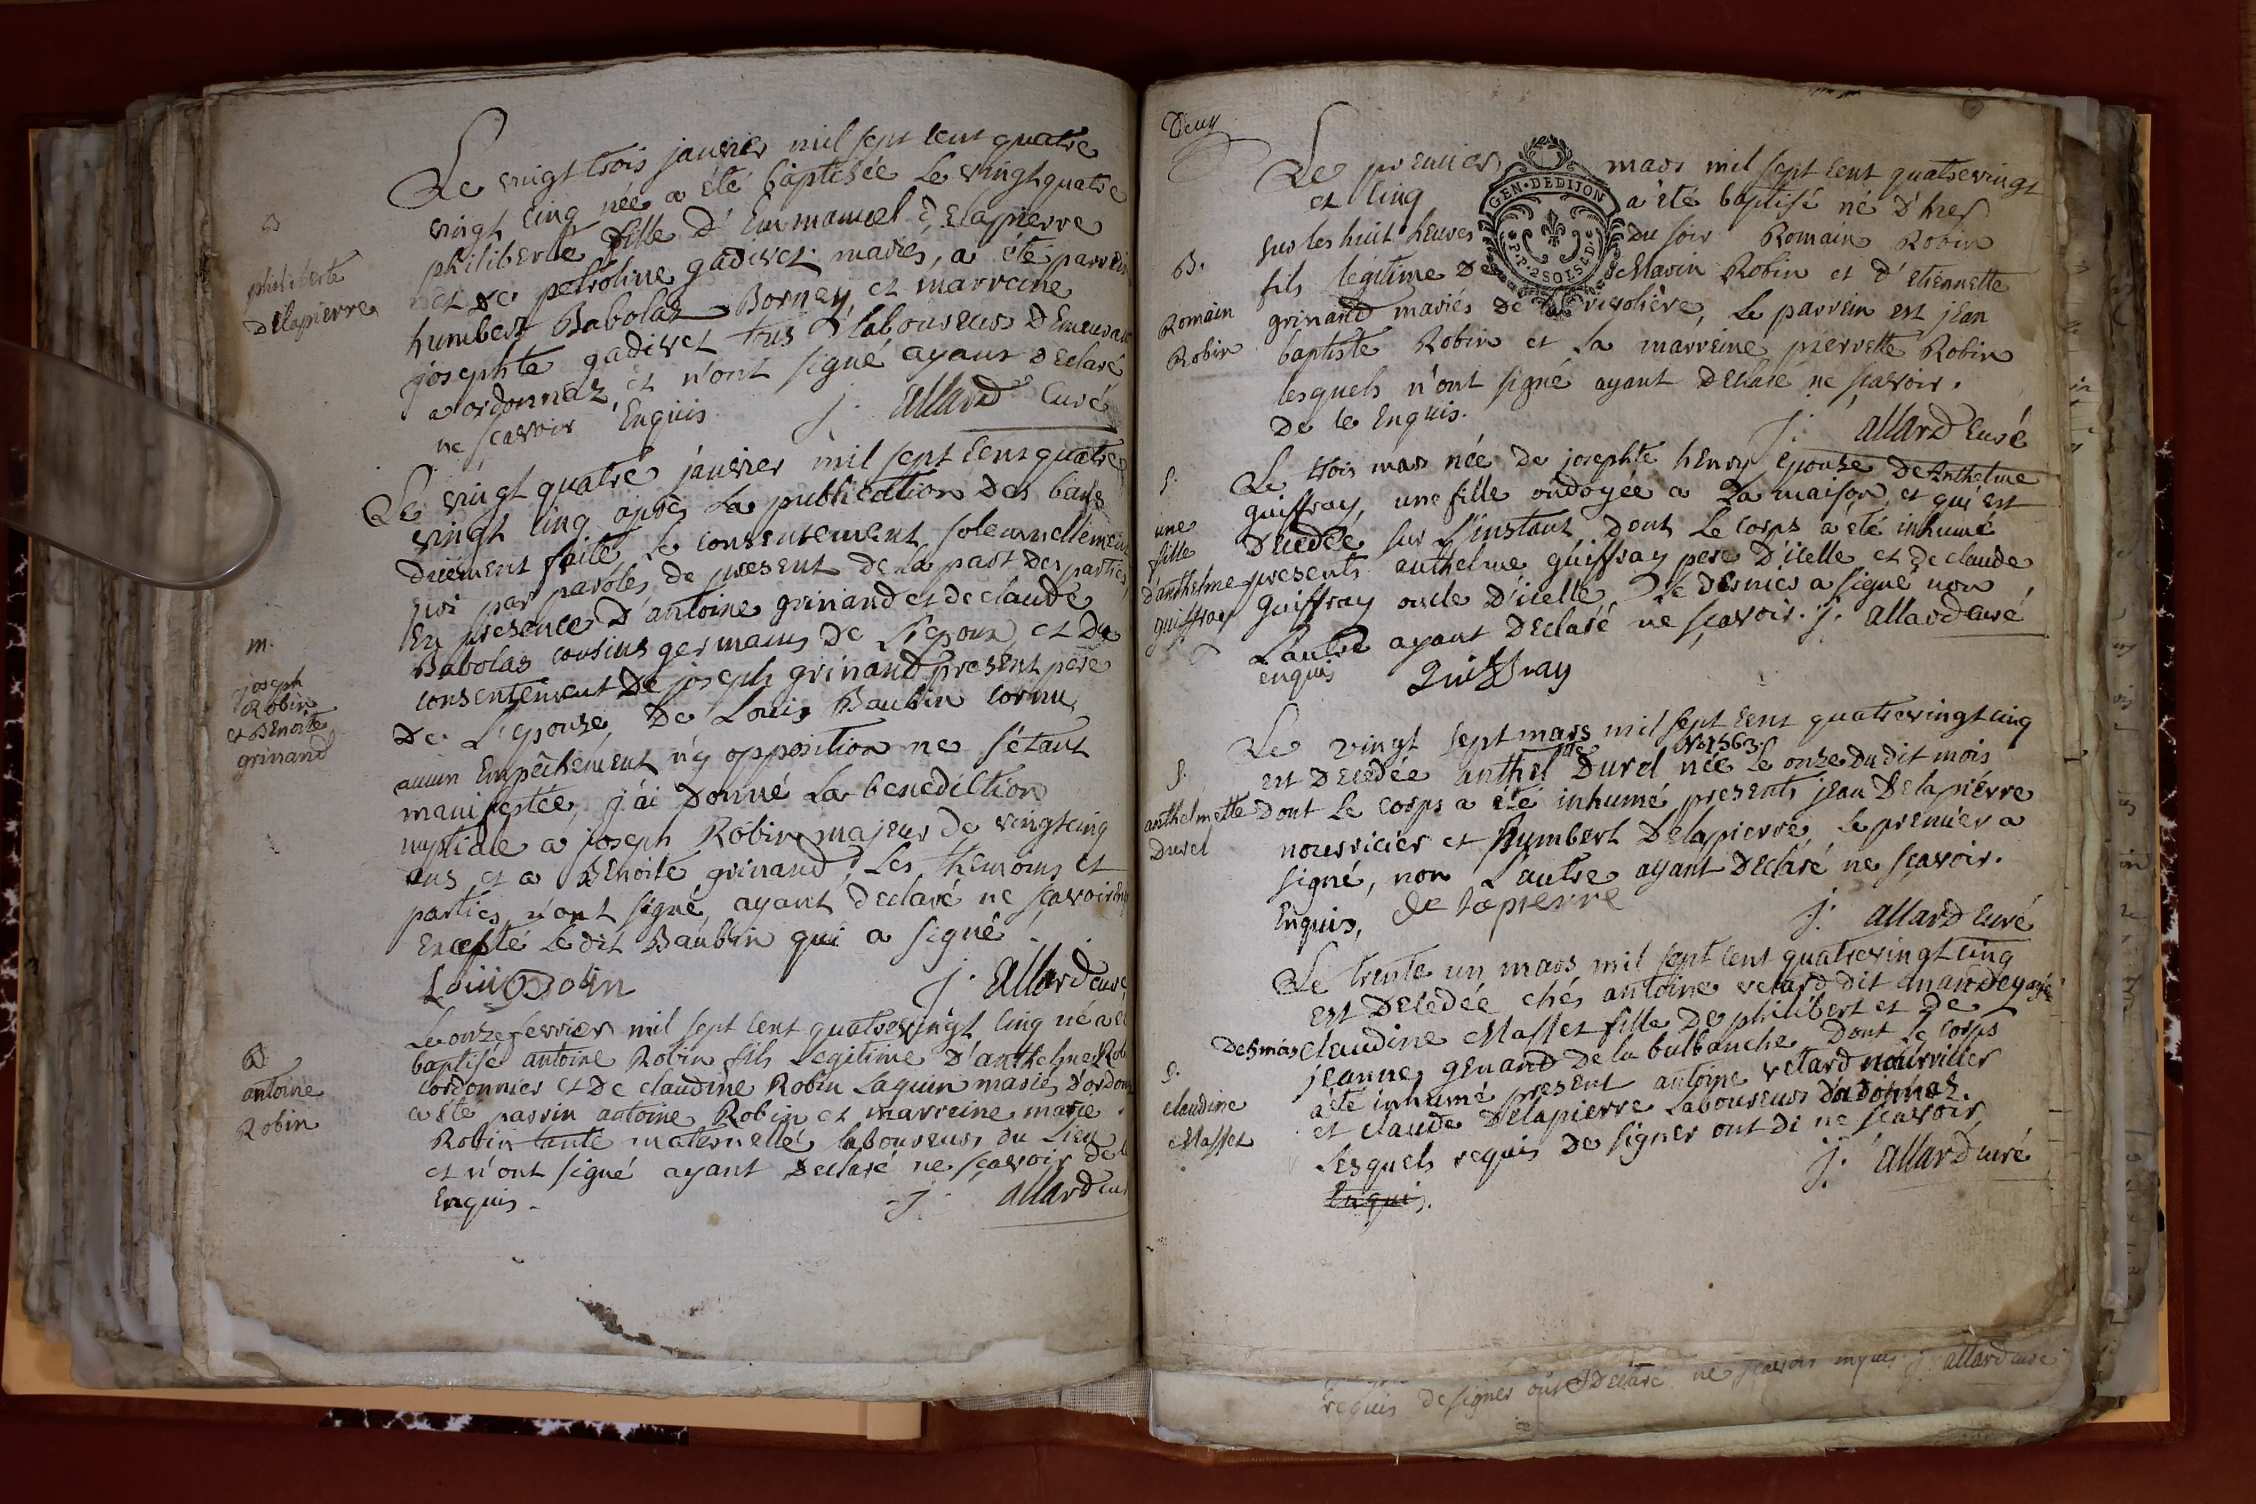 Le vingt trois janvier mil sept cent quatre
vingt cinq née a été baptisée le vingt quatre
philiberte fille d'Emmanuel delapierre
et de petroline gadivet mariés, a été parrein
humbert Babolat Borney et marreine
josephte gadivet tous laboureurs
a ordonnaz, et n'ont signé ayant declaré
ne scavoir Enquis. j. allard Curé
B
philiberte
Delapierre
Le vingt quatre janvier mil sept cent quatre
vingt cinq après la publication des bans
duement faite le consentement solemnellement
par paroles de present de la part des parties
En presence d'antoine grinand et de claude
Babolas cousins germains de L'Epoux, et du
consentement de joseph grinand present père
De L'Epouse, De Louis Baubin cornu,
aucun Empêchement n'y opposition ne s'étant
manifestée, j'ai Donné La benediction
nuptiale a joseph Robin majeur de vingt cinq
ans et a Benoite grinand. Les themoins et
parties n'ont signé, ayant declaré ne scavoir
Excepté le dit Baubin qui a signé.
j. allard curé
m.
joseph
Robin
et Benoite
grinand
Le onze fevrier mil sept cent quatrevingt cinq né a été
baptisé antoine Robin fils Legitime d'anthelme
cordonnier et De claudine Robin Laguin mariés
a été parrin antoine Robin et marreine marie
Robin tante maternelle laboureurs du Lieu
et n'ont signé ayant Declaré ne scavoir de
Enquis. j. allard
B
antoine
Robin
Deux
Le premier mars mil sept cent quatrevingt
et cinq a été baptisé né d'hier
sur les huit heures du soir Romain Robin
fils légitime de Marin Robin et d'etiennette
grinand mariés de la rivolière, Le parrein est jean
baptiste Robin et la marreine pierrette Robin
lesquels n'ont signé ayant Declaré ne scavoir.
De le Enquis. j. allard Curé
GEN. DE DIJON
B.
Romain
Robin
Le trois mars née de josephte henry Epouse De Anthelme
guiffray, une fille ondoyée a La maison, et qui est
Décedée sur L'instant dont Le corps a été inhumé
presents anthelme guiffray pere D'icelle et De claude
guiffray oncle D'icelle, Le dernier a signé non
L'autre ayant Declaré ne scavoir. j. allard curé
enquis Guiffray
S.
une
fille
d'anthelme
guiffray
Le vingt sept mars mil sept cent quatrevingt cinq
N°1563
est Decedée anthel^me Durel née Le onze du dit mois
Dont Le corps a été inhumé presents jean Delapierre
nourricier et humbert Delapierre, Le premier a
signé, non L'autre ayant Declaré ne scavoir.
Enquis, de lapierre
j. allard Curé
S.
anthelmette
Durel
Le trente un mars mil sept cent quatrevingt cinq
est Decedée chés antoine vetard dit
claudine Masset fille De philibert et De
jeanne genand De la balbanche Dont Le corps
a été inhumé present antoine vetard nourricier
et claude Delapierre Laboureurs D'ordonnaz.
Lesquels requis De signer ont di ne scavoir
j. allard curé
Enquis.
S.
claudine
Masset
requis de signer ont Declaré ne scavoir enquis j. allard curé